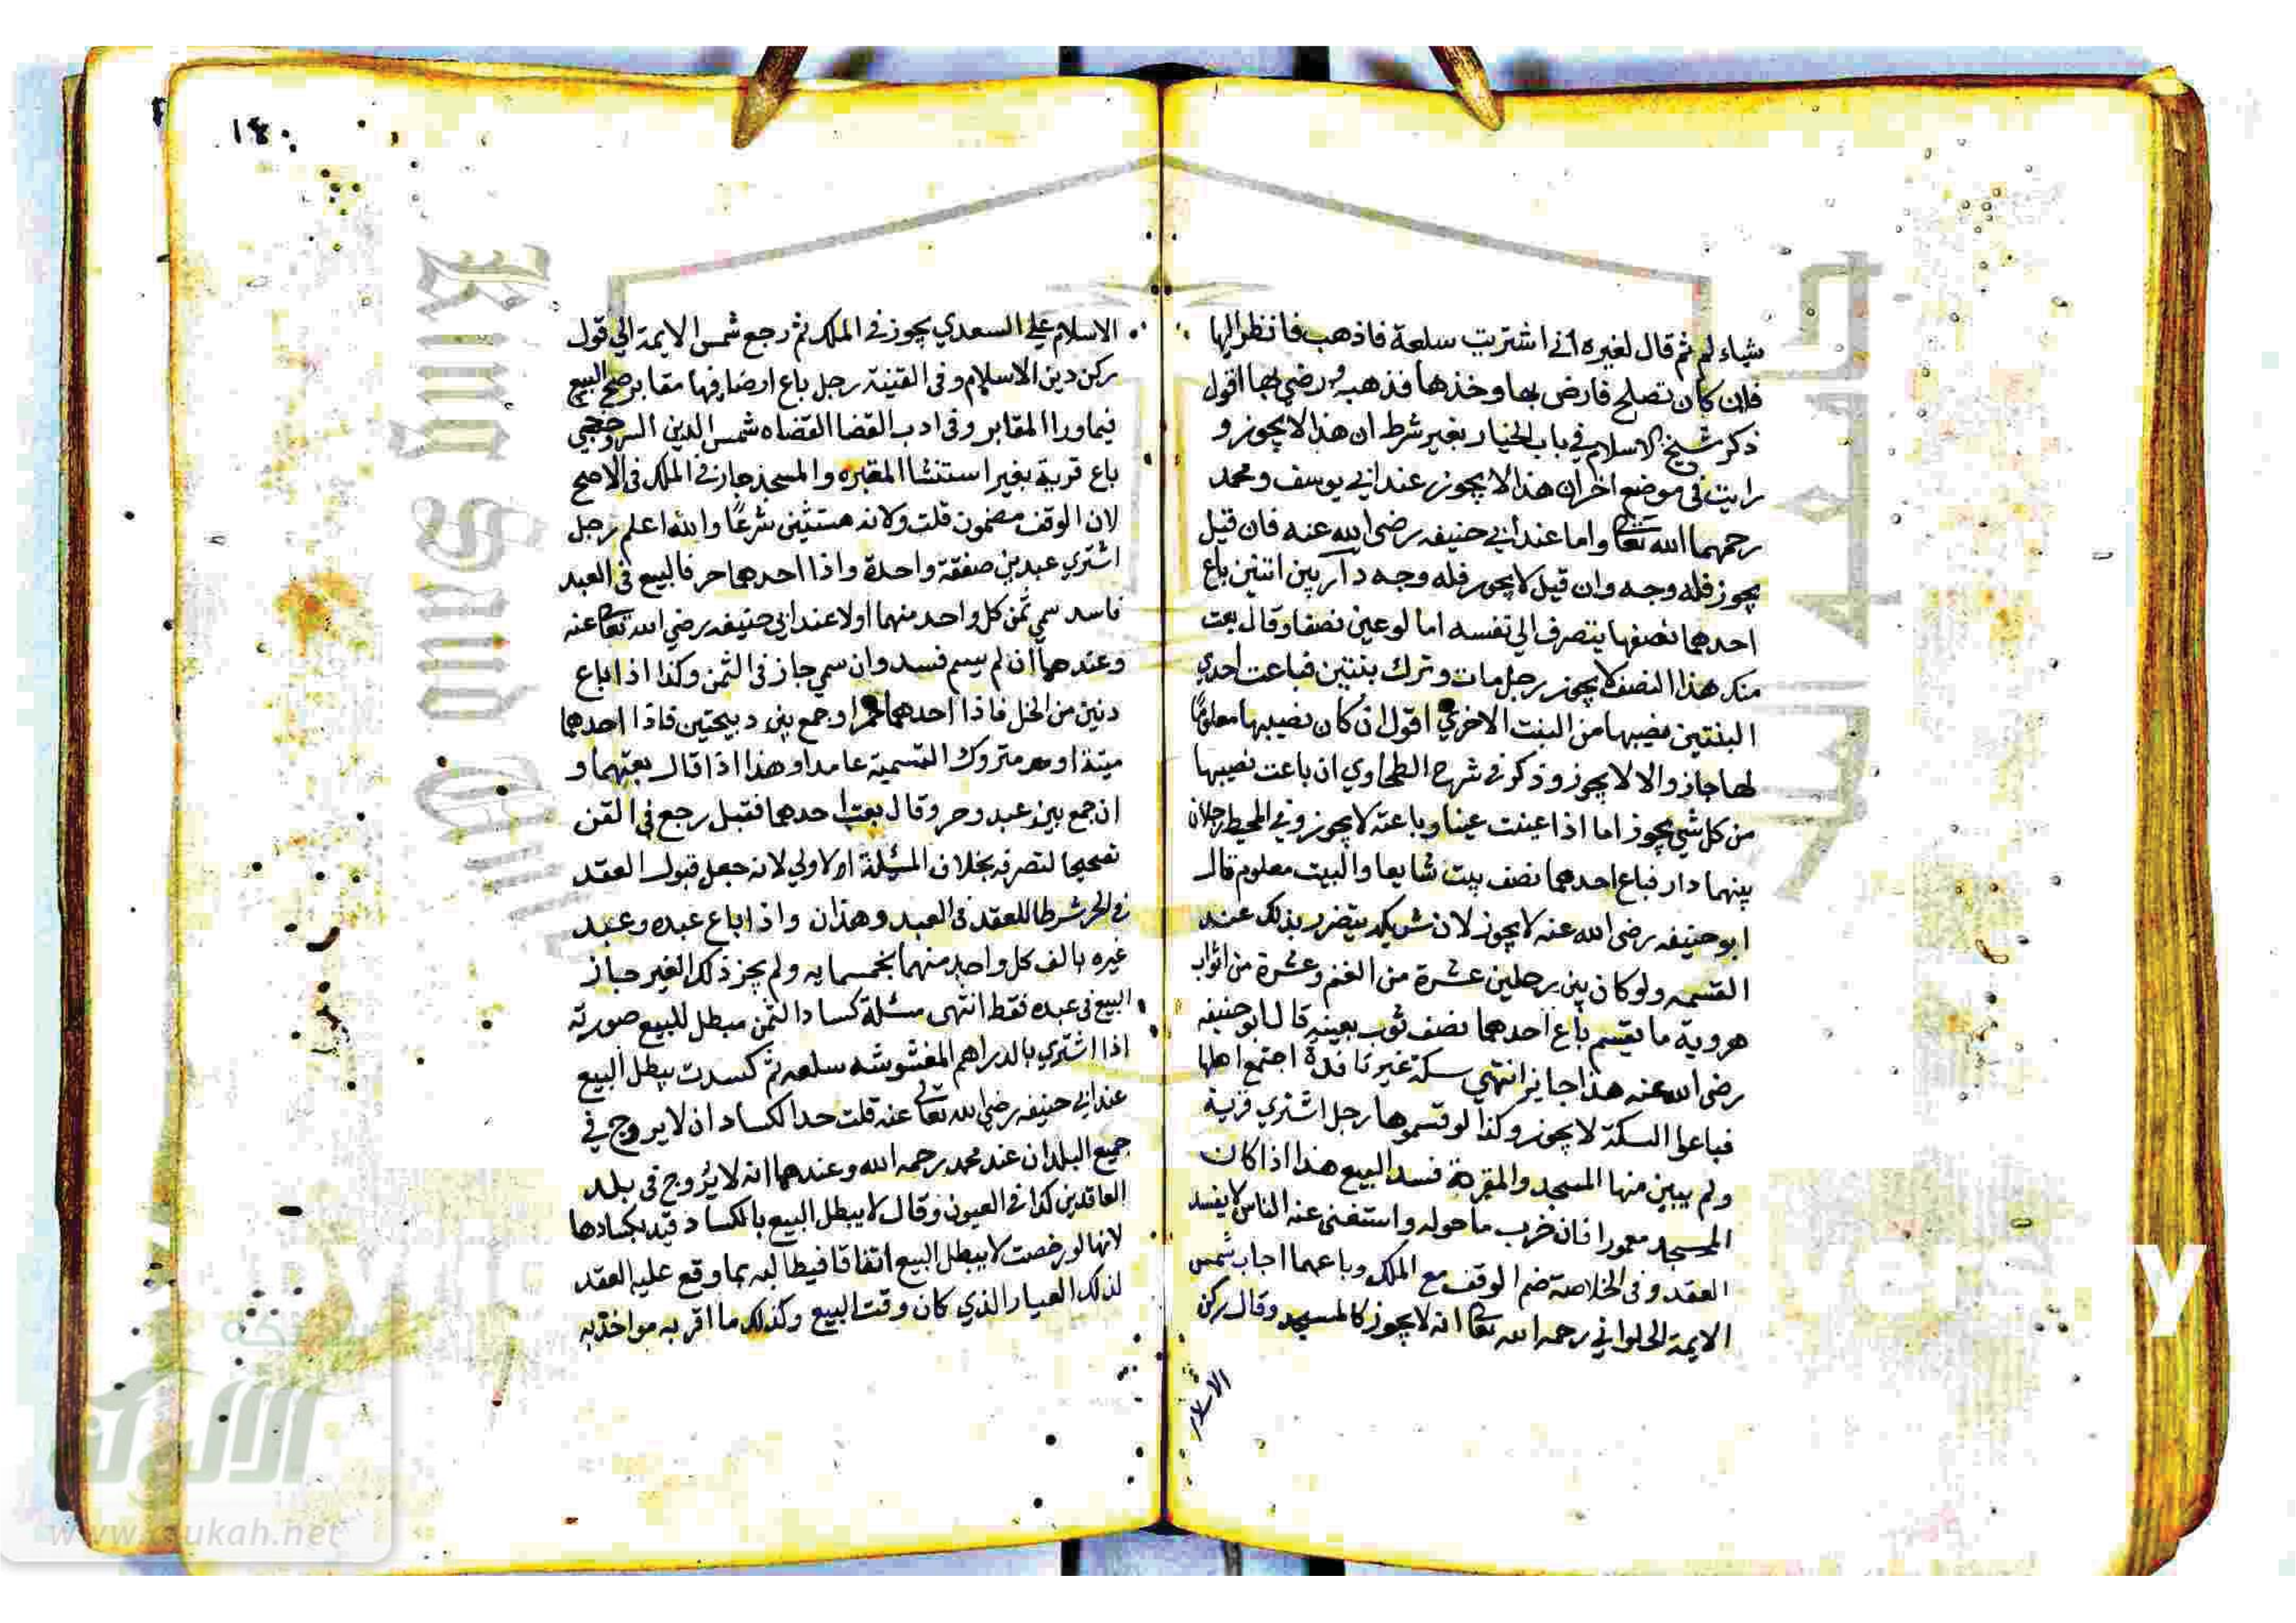 شياء لم ثم قال لغيره اني اشتريت سلعة فاذهب فانظر اليها
فان كان تصلح فارض بها وخذها فذهب ورضي بها اقول
ذكر شيخ الاسلام في باب الخيار بغير شرط ان هذا لا يجوز و
رايت في موضع اخر ان هذا لا يجوز عند ابي يوسف ومحمد
رحمهما الله تعالى واما عند ابي حنيفه رضى الله عنه فان قيل
يجوز فله وجه وان قيل لا يجوز فله وجه دار بين اثنين باع
احدهما نصفها يتصرف الي نفسه اما لو عين نصفا وقال بعت
منك هذا النصف لا يجوز رجل مات وترك بنتين فباعت احدي
البنتين نصيبها من البنت الاخري اقول ان كان نصيبها معلومًا
لها جاز والا لا يجوز وذكر في شرح الطحاوي ان باعت نصيبها
من كل شي يجوز اما اذا عينت عينا وباعته لا يجوز وفي المحيط رجلان
بينهما دار فباع احدهما نصف بيت شايعا والبيت معلوم قال
ابو حنيفه رضى الله عنه لا يجوز لان شريكه يتضرر بذلك عند
القسمه ولو كان بين رجلين عشرة من الغنم وعشرة من اثواب
هروية ما يقسم باع احدهما نصف ثوب بعينه قال ابو حنيفه
رضى الله عنه هذا جايز انتهي سكة غير نافذة اجتمع اهلها
فباعوا السكة لا يجوز وكذا لو قسموها رجل اشتري قرية
ولم يبين منها المسجد والمقبرة فسد البيع هذا اذا كان
المسجد معمورا فان خرب ما حوله واستغنى عنه الناس لا يفسد
العقد وفى الخلاصة ضم الوقف مع الملك وباعهما اجاب شمس
الايمة الحلواني رحمه الله تعالى انه لا يجوز كالمسجد وقال ركن
الاسلام
١٤٠
الاسلام علي السعدي يجوز في الملك ثم رجع شمس الايمة الي قول
ركن دين الاسلام وفى القنية رجل باع ارضا فيها مقابر صح البيع
فيما ورا المقابر وفى ادب القضا القضاه شمس الدين السروجي
باع قرية بغير استثنا المقبره والمسجد جاز في الملك فى الاصح
لان الوقف مضمون قلت ولانه مستثنى شرعًا والله اعلم رجل
اشتري عبدين صفقة واحدة واذا احدهما حر فالبيع في العبد
فاسد سمي ثمن كل واحد منهما اولا عند ابى حنيفه رضي الله تعالى عنه
وعندهما ان لم يسم فسد وان سمي جاز فى الثمن وكذا اذا باع
دنين من الخل فاذا احدهما خمر او جمع بين ذبيحتين فاذا احدهما
ميتة او متروك التسمية عامدا وهذا اذا قال بعتهما و
ان جمع بين عبد وحر وقال بعت احدهما فقبل رجع فى القن
تصحيحا لتصرفه بخلاف المسئلة الاولي لانه جعل قبول العقد
في الحر شرطا للعقد فى العبد وهذان واذا باع عبده وعبد
غيره بالف كل واحد منهما بخمسمايه ولم يجز ذلك الغير جاز
البيع فى عبده فقط انتهى مسئلة كساد الثمن مبطل للبيع صورته
اذا اشتري بالدراهم المغشوشه سلعه ثم كسدت يبطل البيع
عند ابي حنيفه رضي الله تعالى عنه قلت حد الكساد ان لا يروج في
جميع البلدان عند محمد رحمه الله وعندهما انه لا يروج فى بلد
العاقدين كذا في العيون وقال لا يبطل البيع بالكساد قيد بكسادها
لانها لو رخصت لا يبطل البيع اتفاقا فيطالبه بما وقع عليه العقد
لذلك العيار الذي كان وقت البيع وكذلك ما اقر به مواخذ به
King Saud
y
الألوكة
www.alukah.net